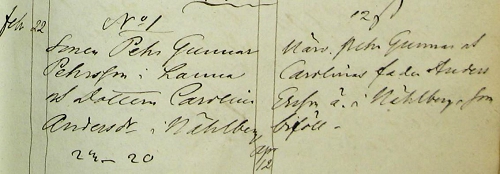 febr 22
No 1
Sonen Pehr Gunnar
Pehrsson i Lanna
och dottern Carolina
Andersdr i Nählberg
24 - 20
Apr
12
12 s
Närv. Pehr Gunnar och
Carolinas fader Anders
Ersson ä. i Nählberg, som
biföll -